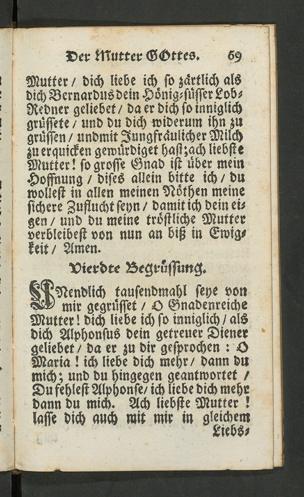 Der Mutter GOttes. 69
Mutter / dich liebe ich so zärtlich als
dich Bernardus dein Hönig-süsser Lob-
Redner geliebet / da er dich so inniglich
grüssete / und du dich widerum ihn zu
grüssen / undmit Jungfräulicher Milch
zu erquicken gewürdiget hast; ach liebste
Mutter! so grosse Gnad ist über mein
Hoffnung / dises allein bitte ich / du
wollest in allen meinen Nöthen meine
sichere Zuflucht seyn / damit ich dein ei-
gen / und du meine tröstliche Mutter
verbleibest von nun an biß in Ewig-
keit / Amen.
Vierdte Begrüssung.
UNendlich tausendmahl seye von
mir gegrüsset / O Gnadenreiche
Mutter! dich liebe ich so inniglich / als
dich Alphonsus dein getreuer Diener
geliebet / da er zu dir gesprochen: O
Maria! ich liebe dich mehr / dann du
mich; und du hingegen geantwortet /
Du fehlest Alphonse / ich liebe dich mehr
dann du mich. Ach liebste Mutter!
lasse dich auch mit mir in gleichem
Liebs-